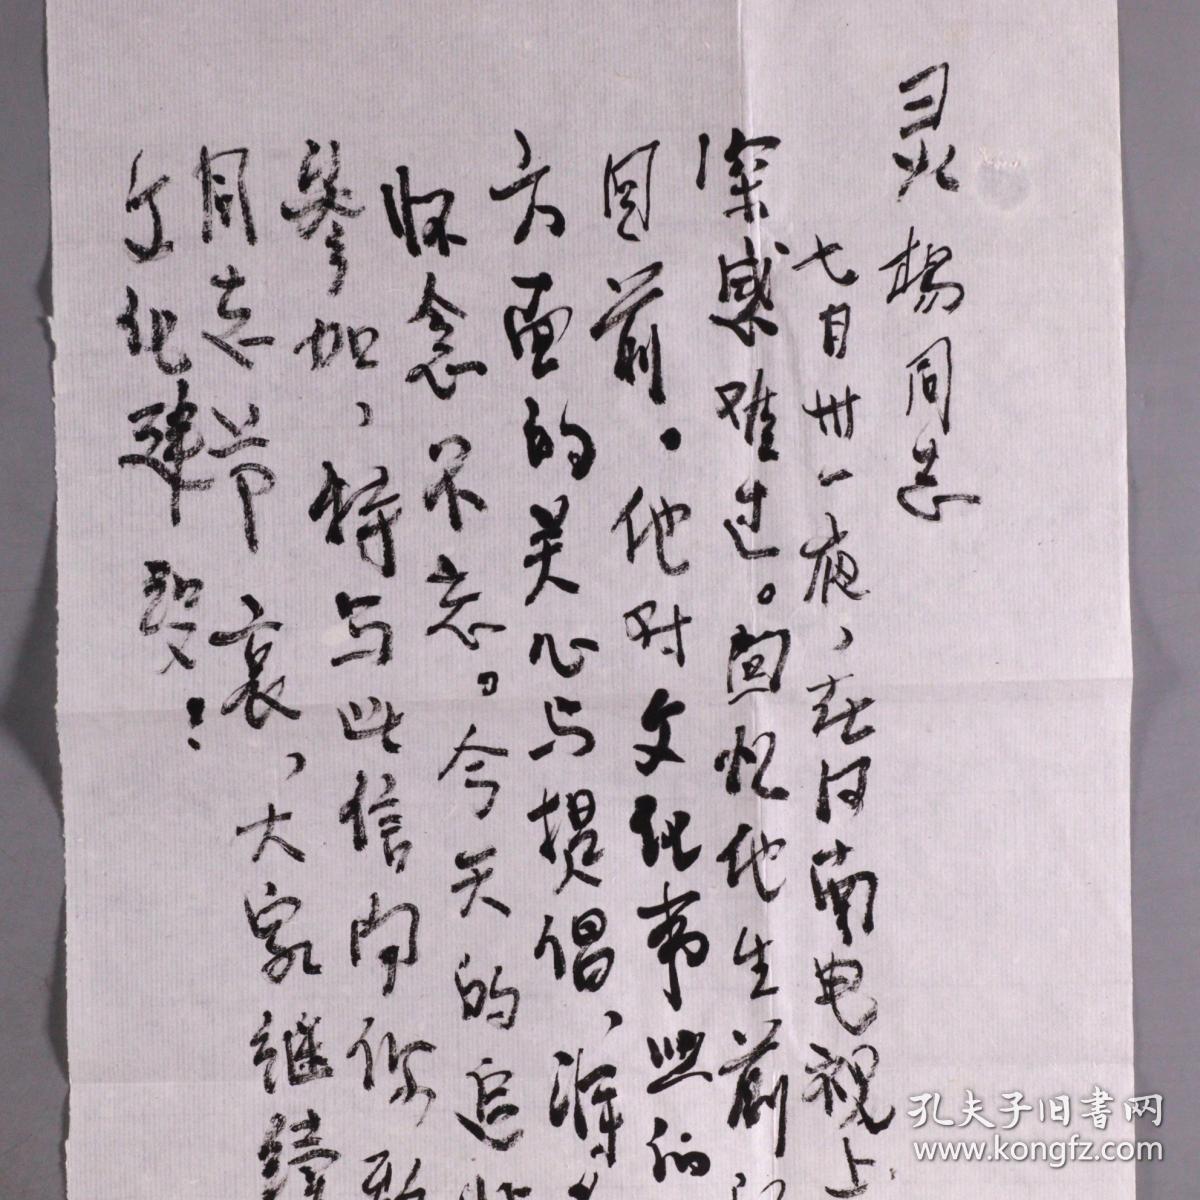 灵杨同志
七月卅一夜，在河南电视上
深感难过。回忆他生前
目前。他对文化事业的
方面的关心与提倡，深
怀念不忘。今天的追
参加，特与此信问你
同志节哀，大家继续
文化建设！
孔夫子旧書网
www.kongfz.com